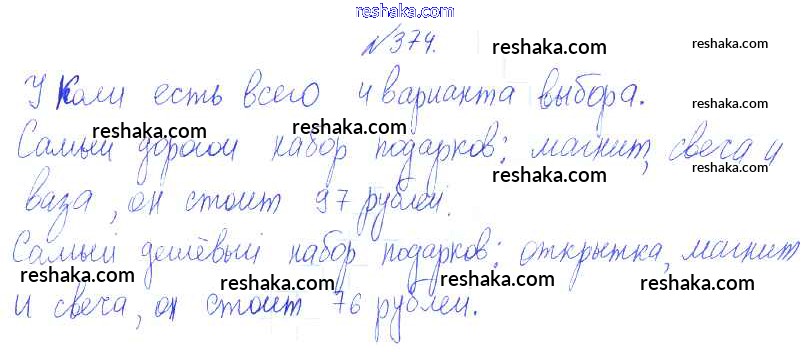 reshaka.com
№374. reshaka.com
У Коли есть всего 4 варианта выбора.
reshaka.com
reshaka.com reshaka.com reshaka.com
Самый дорогой набор подарков: магнит, свеча и
reshaka.com
ваза, он стоит 97 рублей.
reshaka.com reshaka.com reshaka.com
Самый дешёвый набор подарков: открытка, магнит
reshaka.com reshaka.com reshaka.com
и свеча, он стоит 76 рублей.
reshaka.com